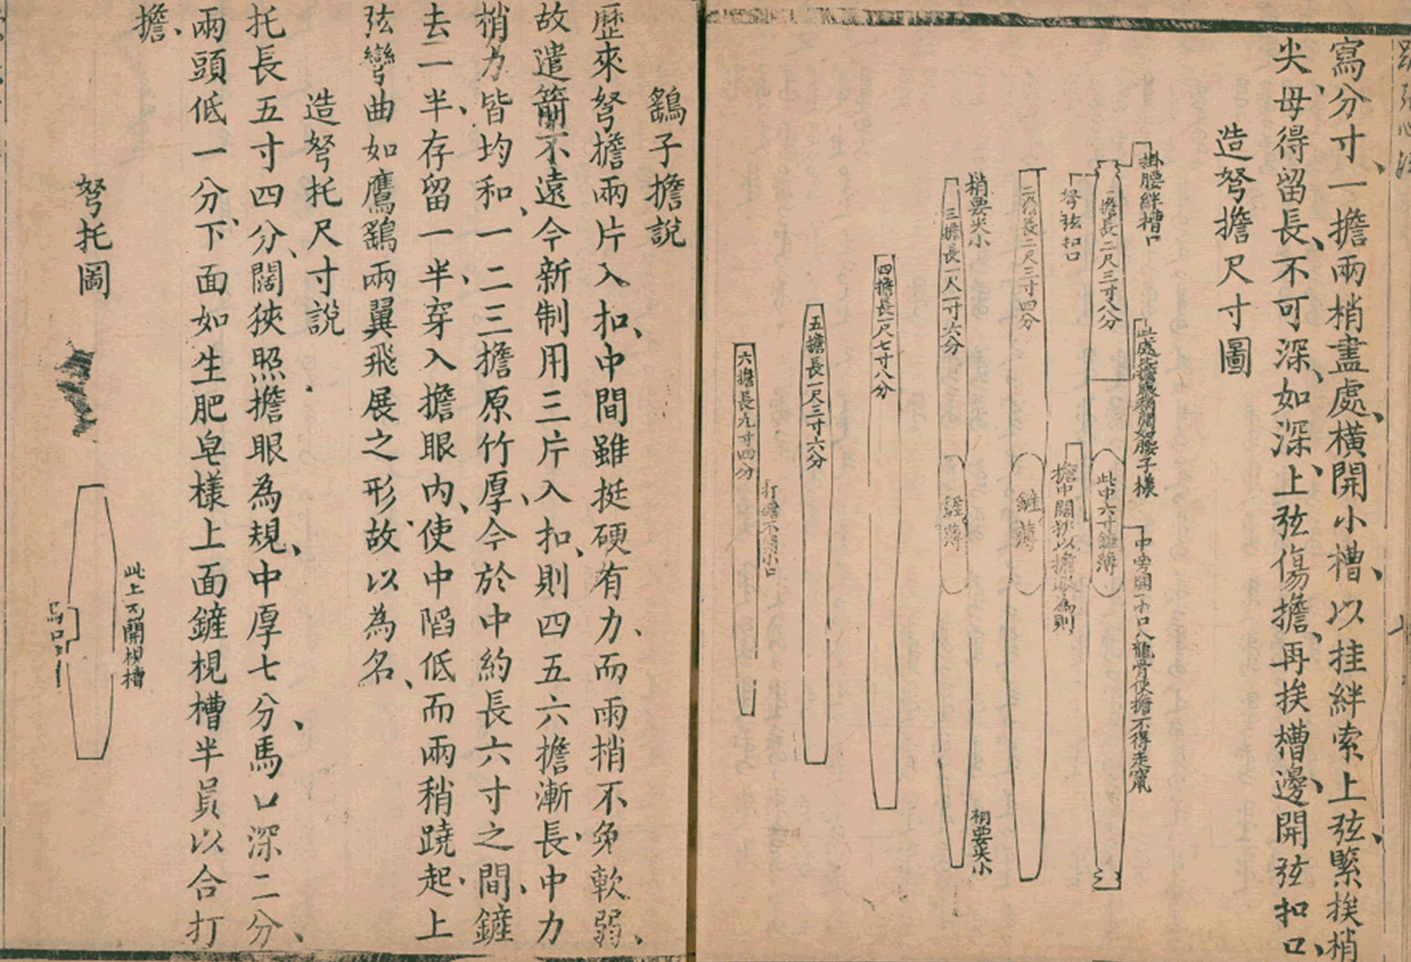 寫分寸、一擔兩梢盡處、橫開小槽、以挂絆索上弦緊挨梢
尖、毋得留長、不可深、如深、上弦傷擔、再挨槽邊開弦扣口、
造弩擔尺寸圖
掛腰絆槽口
一擔長二尺三寸八分
此中六寸鏟薄
中旁開一小口入龍骨使擔不得走竄
弩弦扣口
擔中闊狹以擔眼為則
二擔長二尺三寸四分
鏟薄
梢要尖小
三擔長一尺二寸六分
鏟薄
梢要尖小
四擔長一尺七寸八分
五擔長一尺三寸六分
六擔長九寸四分
打擔不用小口
鷂子擔說
歷來弩擔兩片入扣、中間雖挺硬有力、而兩梢不免軟弱、
故遣箭不遠、今新制用三片入扣、則四五六擔漸長、中力
梢力皆均和、一二三擔原竹厚、今於中約長六寸之間、鏟
去二半、存留一半、穿入擔眼內、使中陷低而兩稍蹺起、上
弦彎曲如鷹鷂兩翼飛展之形、故以為名、
造弩托尺寸說
托長五寸四分、闊狹照擔眼為規、中厚七分、馬口深二分、
兩頭低一分、下面如生肥皂樣上面鏟梘槽半員以合打
擔、
弩托圖
此上面開梘槽
馬口